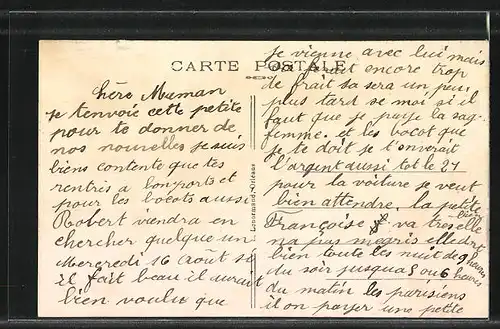 CARTE POSTALE
Chère Maman
je tenvoie cette petite
pour te donner de
nos nouvelles je suis
biens contente que tes
rentrés a bon ports et
pour les bocots aussi
Robert viendra en
chercher quelque un
Mercredi 16 Aout se
il fait beau il aurait
bien voulu que
je vienne avec lui mais
sa ferait encore trop
de frait sa sera un peu
plus tart se moi si il
faut que je paye la sag-
femme. et les bocot que
je te doit je t'enverait
l'argent aussi tot le 21
pour la voiture je veut
bien attendre, la petite
Françoise va tres elle
na pas megris elle dort
bien toute les nuit de 9 heures
du soir jusqua 5 ou 6 heures
du matin les parisiens
il on payer une petite